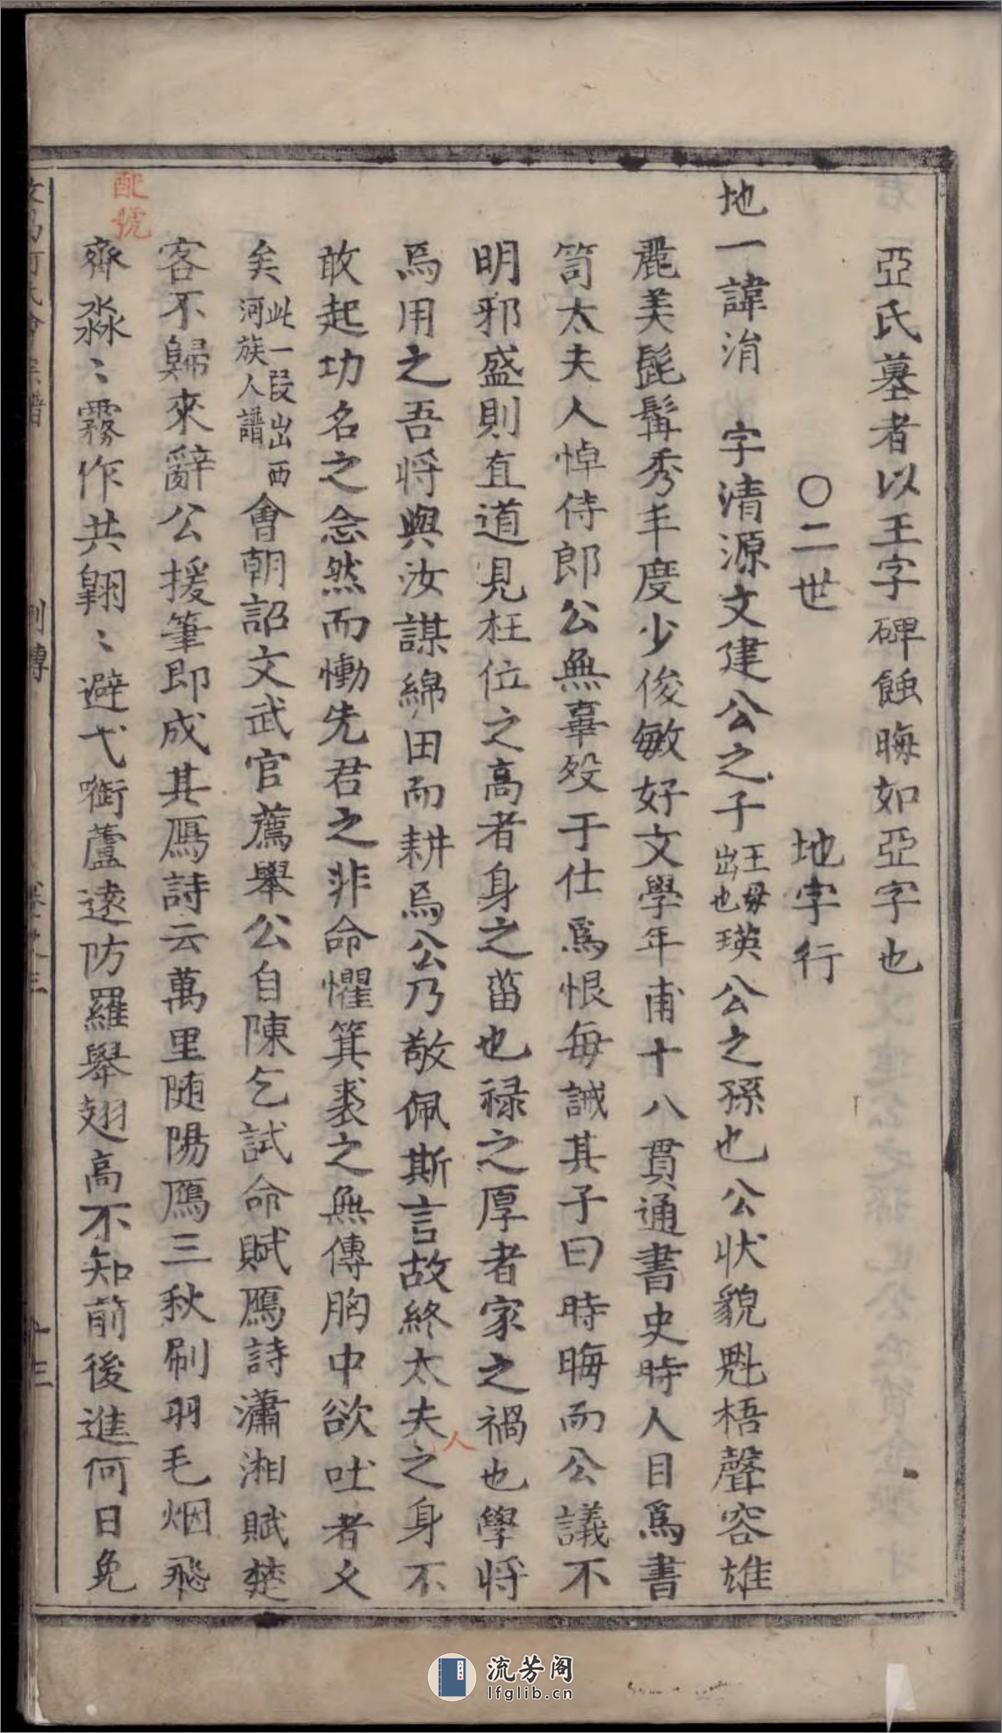 亞氏墓者以王字碑蝕晦如亞字也
〇二世 地字行
地一諱㳙 字清源文建公之子王毋出也瑛公之孫也公状貌魁梧聲容雄
麗美髭髯秀丰度少俊敏好文學年甫十八貫通書史時人目爲書
笥太夫人悼侍郎公無辜歿于仕爲恨毎誡其子曰時晦而公議不
明邪盛則直道見枉位之高者身之菑也禄之厚者家之禍也學将
焉用之吾将與汝謀綿田而耕焉公乃敬佩斯言故終太夫人之身不
敢起功名之念然而慟先君之非命懼箕裘之無傳胸中欲吐者久
矣此一段出西河族人譜會朝詔文武官薦舉公自陳乞試命賦鴈詩瀟湘賦楚
客不歸來辭公援筆即成其鴈詩云萬里随陽鴈三秋刷羽毛烟飛
齊淼〻霧作共翺〻避弋銜蘆逺防羅舉翅高不知前後進何日免
配號
列傳
流芳阁
lfglib.cn